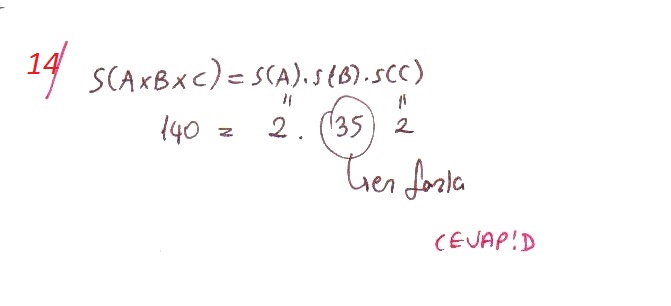 14/ S(A×B×C) = S(A).S(B).S(C)
" "
140 = 2 . 35 2
en fazla
CEVAP!D